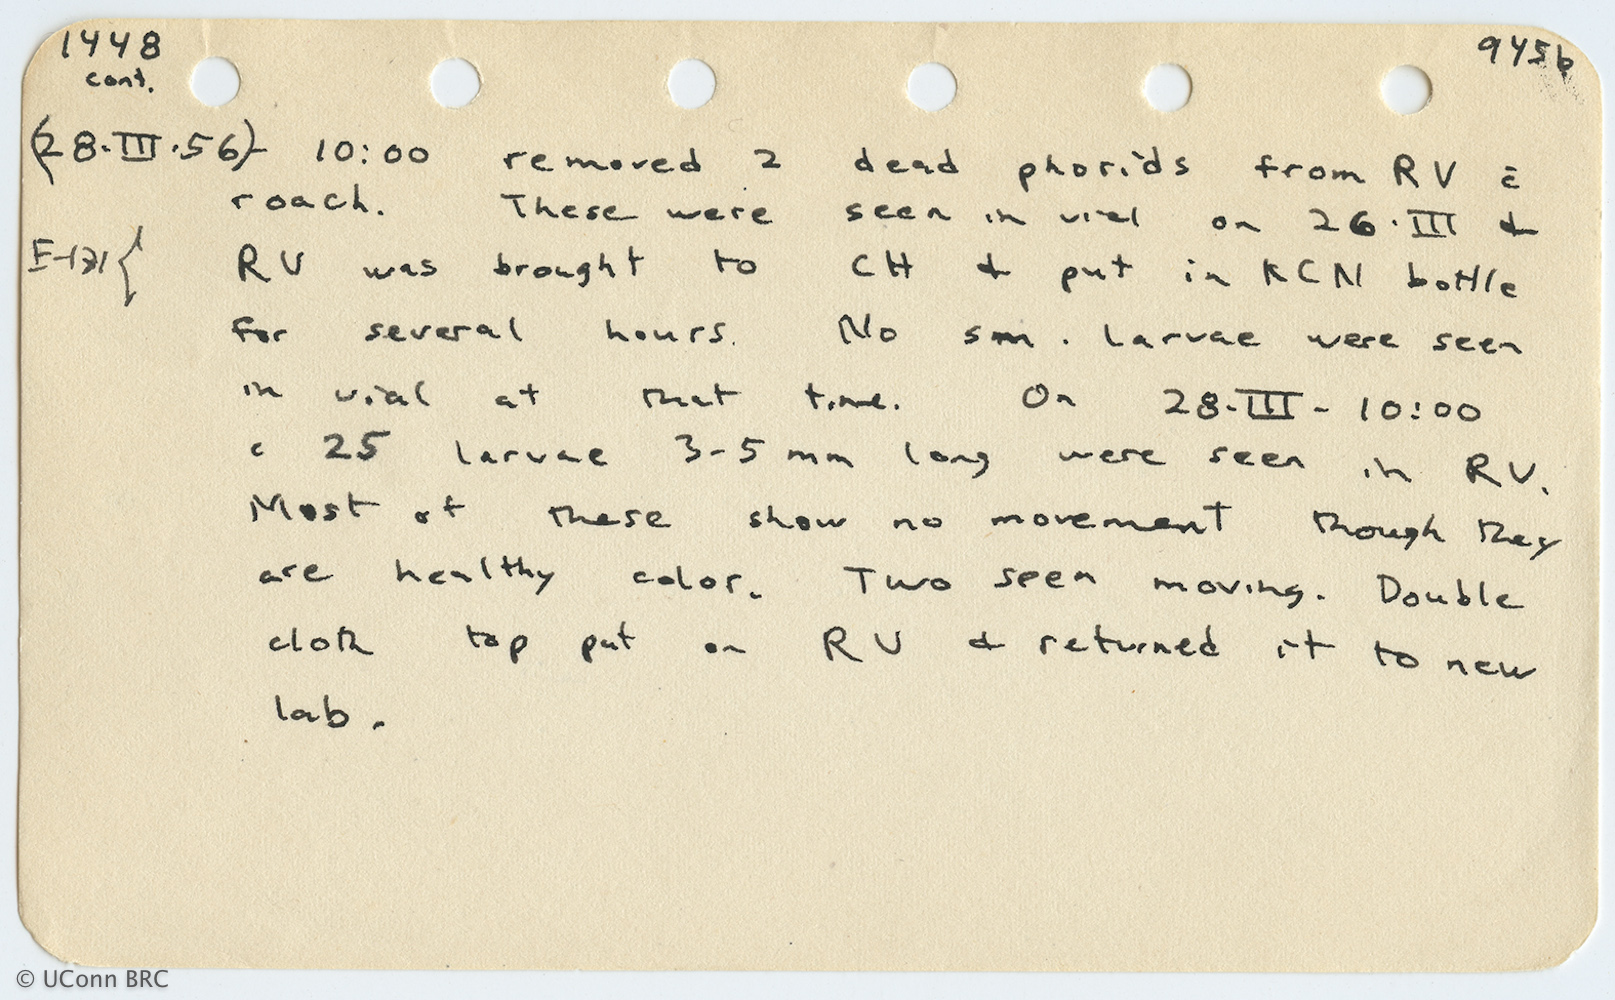 1448 945b
cont.
(28·III·56)- 10:00 removed 2 dead phorids from RV c̄
roach. These were seen in vial on 26·III &
RV was brought to CH & put in KCN bottle
for several hours. No sm. larvae were seen
in vial at that time. On 28·III- 10:00
c 25 larvae 3-5 mm long were seen in RV.
Most of these show no movement though they
are healthy color. Two seen moving. Double
cloth top put on RV & returned it to new
lab.
© UConn BRC